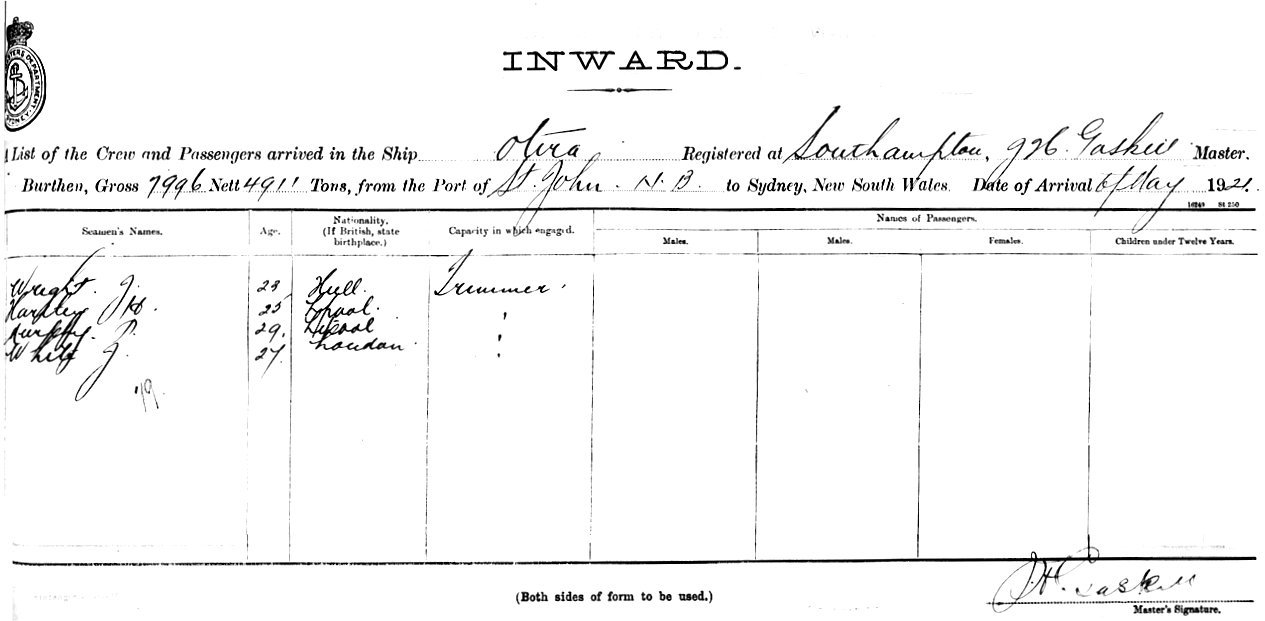 INWARD.
List of the Crew and Passengers arrived in the Ship Otira Registered at Southampton, J H. Gaskell Master.
Burthen, Gross 7996 Nett 4911 Tons, from the Port of St. John. N. B. to Sydney, New South Wales. Date of Arrival 6 May 1921.
16249 St 250
Seamen's Names. Age. Nationality. (If British, state birthplace.) Capacity in which engaged. Names of Passengers.
Males. Males. Females. Children under Twelve Years.
Wright. J. 23 Hull. Trimmer.
Hartley JH. 25 Lpool.
Murphy. P. 29. Lpool
White J. 27. London.
79.
J.H. Gaskell
(Both sides of form to be used.)
Master's Signature.